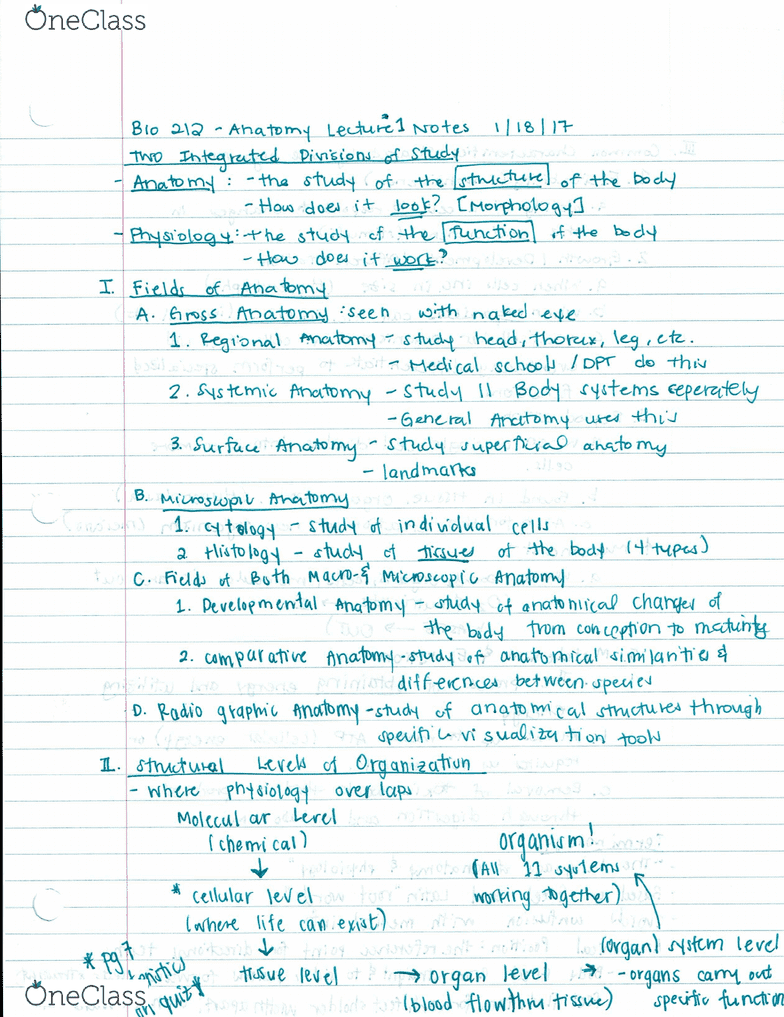 OneClass
Bio 212 - Anatomy Lecture 1 Notes 1/18/17
Two Integrated Divisions of Study
- Anatomy : - the study of the structure of the body
- How does it look? [Morphology]
- Physiology: - the study of the function of the body
- How does it work?
I. Fields of Anatomy
A. Gross Anatomy : seen with naked eye
1. Regional Anatomy - study head, thorax, leg, etc.
- Medical schools / DPT do this
2. Systemic Anatomy - Study 11 Body systems seperately
- General Anatomy uses this
3. Surface Anatomy - study superficial anatomy
- landmarks
B. Microscopic Anatomy
1. cytology - study of individual cells
2 Histology - study of tissues of the body (4 types)
C. Fields of Both Macro- & Microscopic Anatomy
1. Developmental Anatomy - study of anatomical changes of
the body from conception to maturity
2. comparative Anatomy - study of anatomical similarities &
differences between species
D. Radio graphic Anatomy - study of anatomical structures through
specific visualization tools
II. Structural Levels of Organization
- Where physiology over laps
Molecular Level
(chemical)
↓
* cellular level
(where life can exist)
↓
tissue level → organ level → (organ) system level
(blood flow thru tissue)
- organs carry out
specific function
organism!
(All 11 systems
working together)
* pg 7
on quiz *
OneClass